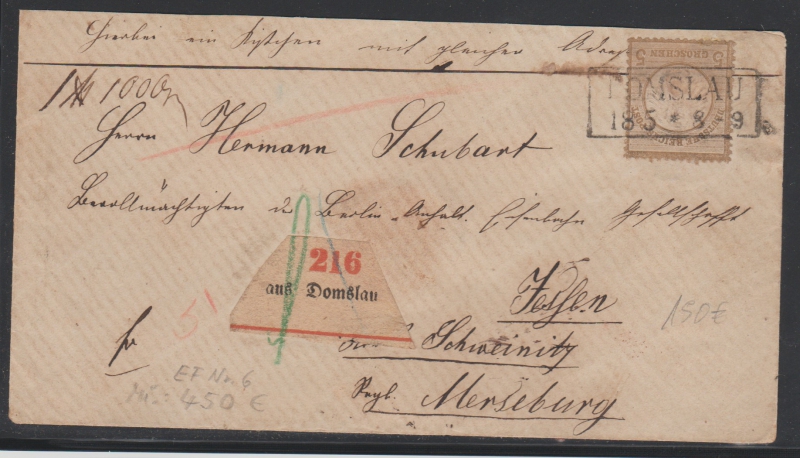 Hierbei ein Kistchen mit gleicher Adresse
5 GROSCHEN 5
DEUTSCHE REICHS POST
DOMSLAU
18 5 * 8 9
1000
Herrn Hermann Schubart
Bevollmächtigten d Berlin-Anhalt. Eisenbahn Gesellschafft
216
aus Domslau
Jessen
150€
5
fr
Schweinitz
EF Nr. 6
Mi.: 450 €
Regb. Merseburg